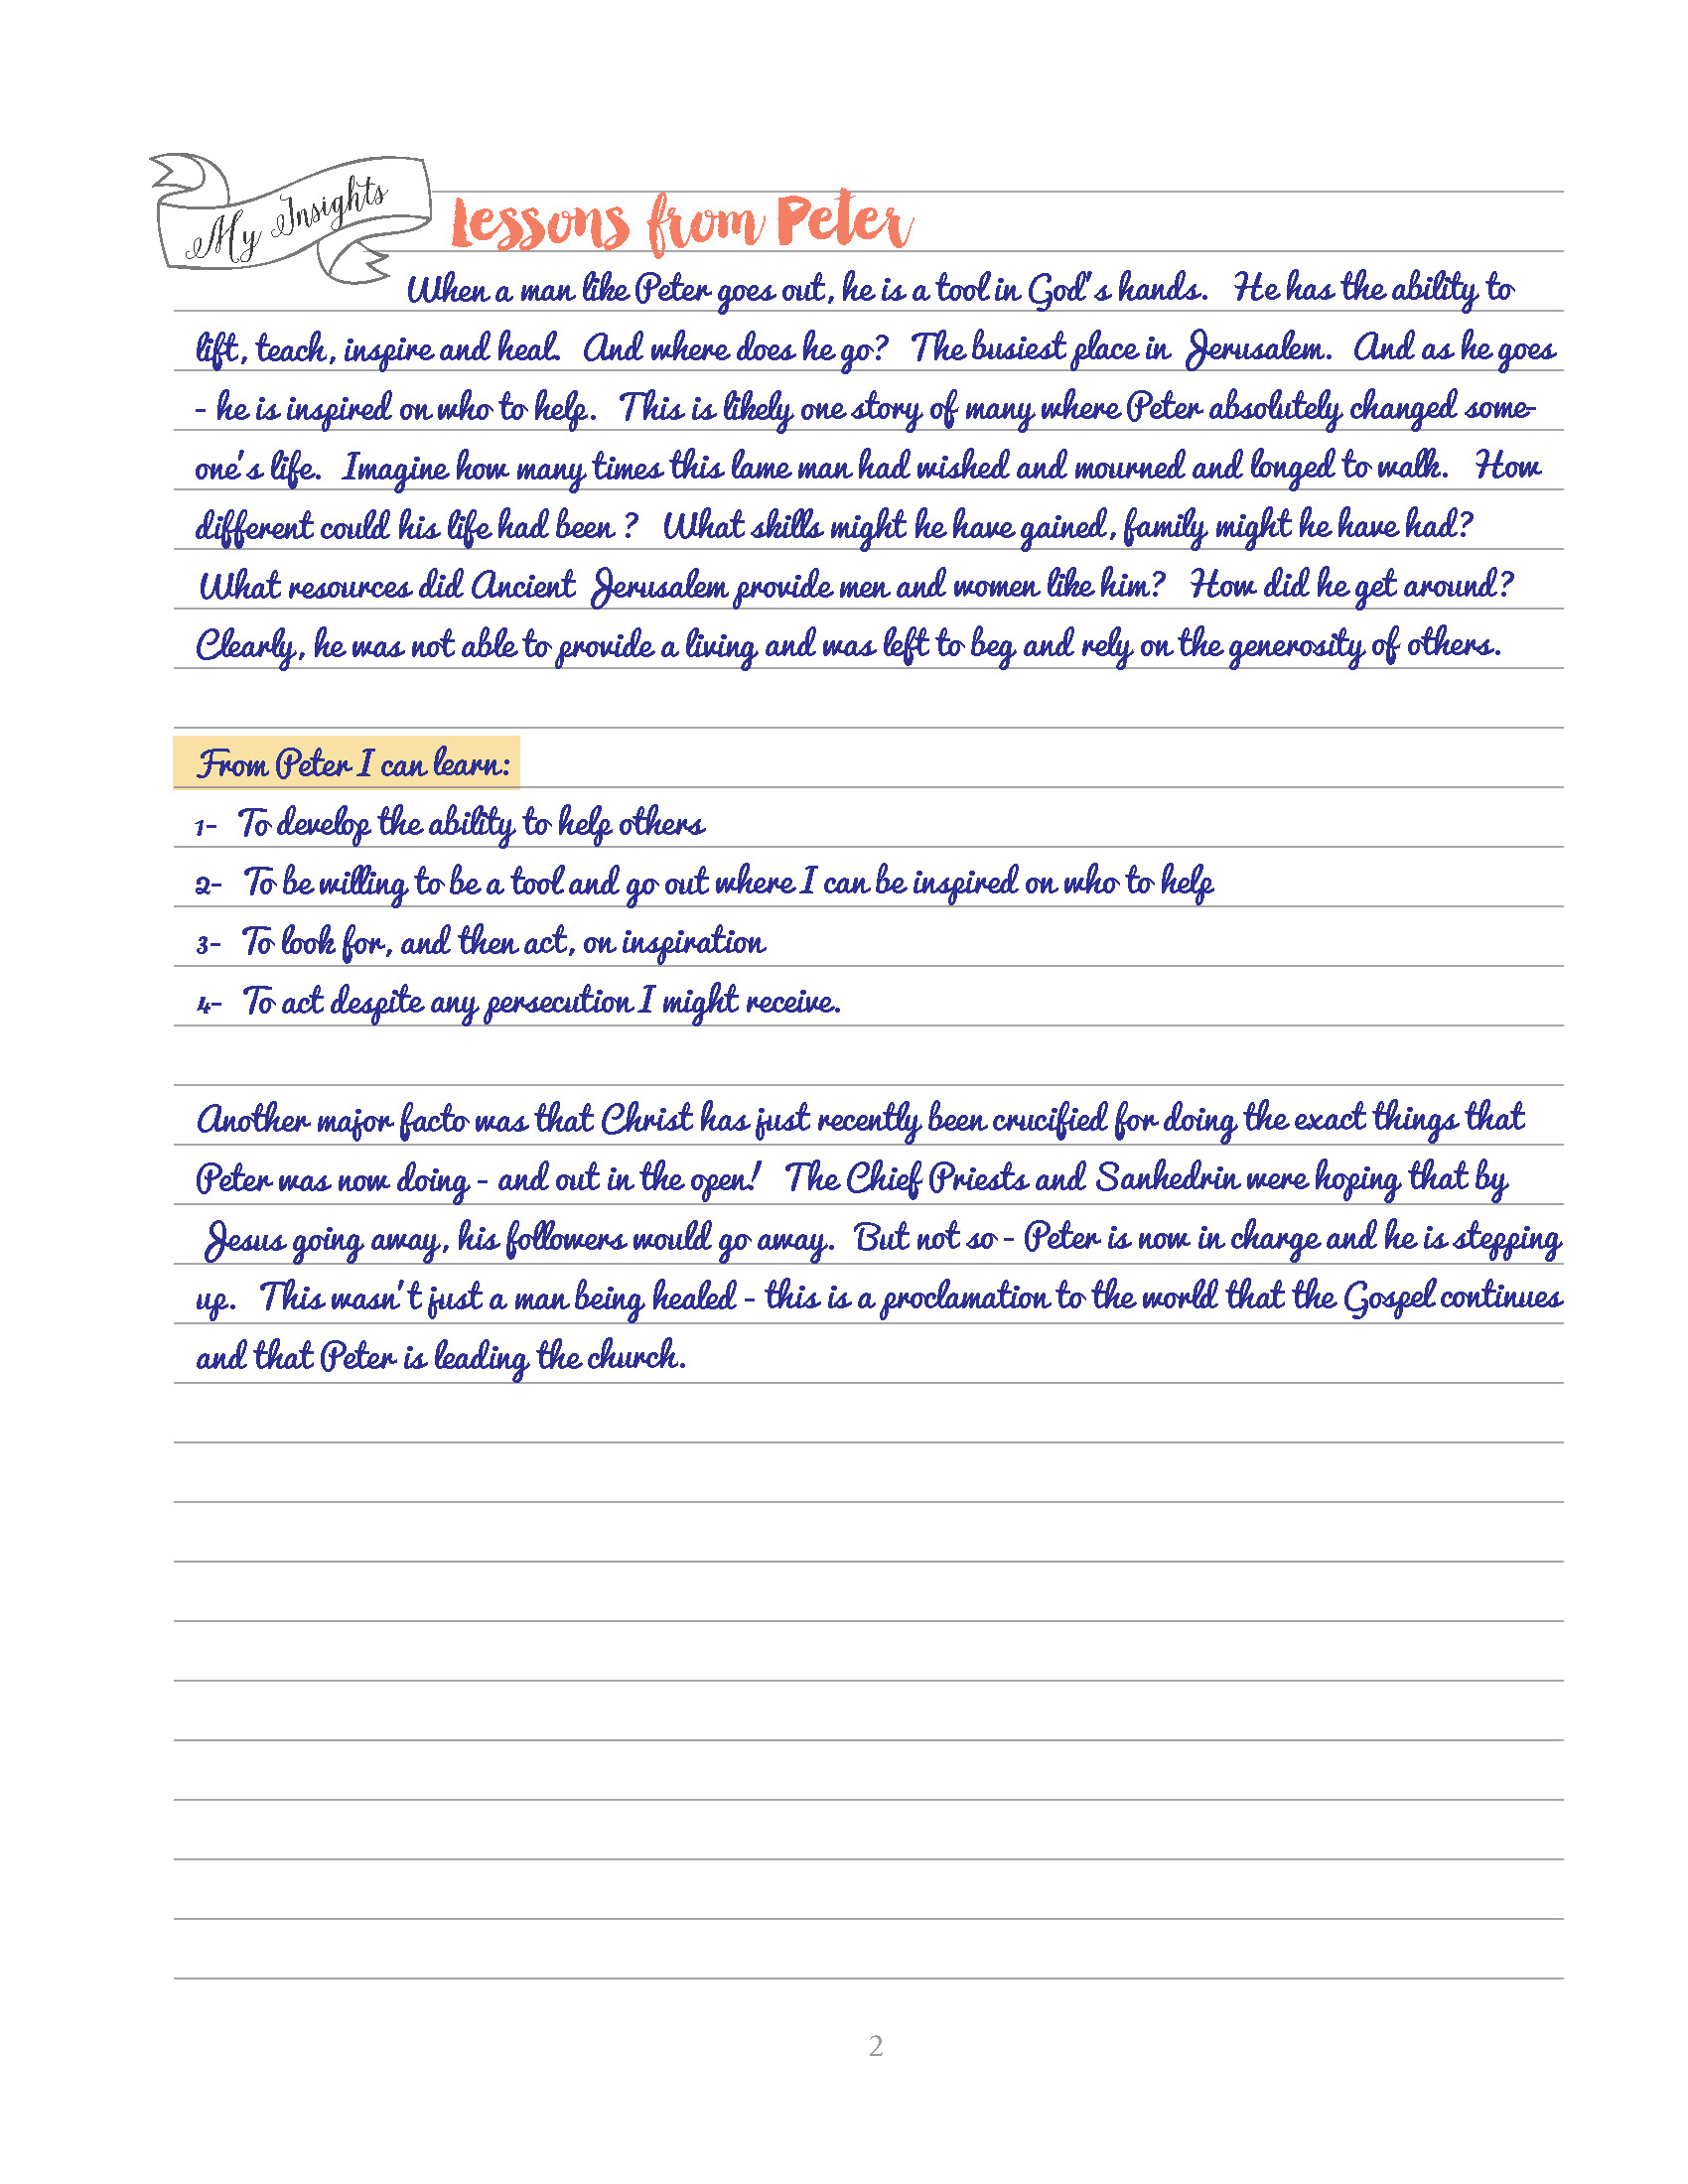 My Insights
Lessons from Peter
When a man like Peter goes out, he is a tool in God's hands. He has the ability to
lift, teach, inspire and heal. And where does he go? The busiest place in Jerusalem. And as he goes
- he is inspired on who to help. This is likely one story of many where Peter absolutely changed some-
one's life. Imagine how many times this lame man had wished and mourned and longed to walk. How
different could his life had been ? What skills might he have gained, family might he have had?
What resources did Ancient Jerusalem provide men and women like him? How did he get around?
Clearly, he was not able to provide a living and was left to beg and rely on the generosity of others.
From Peter I can learn:
1- To develop the ability to help others
2- To be willing to be a tool and go out where I can be inspired on who to help
3- To look for, and then act, on inspiration
4- To act despite any persecution I might receive.
Another major facto was that Christ has just recently been crucified for doing the exact things that
Peter was now doing - and out in the open! The Chief Priests and Sanhedrin were hoping that by
Jesus going away, his followers would go away. But not so - Peter is now in charge and he is stepping
up. This wasn't just a man being healed - this is a proclamation to the world that the Gospel continues
and that Peter is leading the church.
2